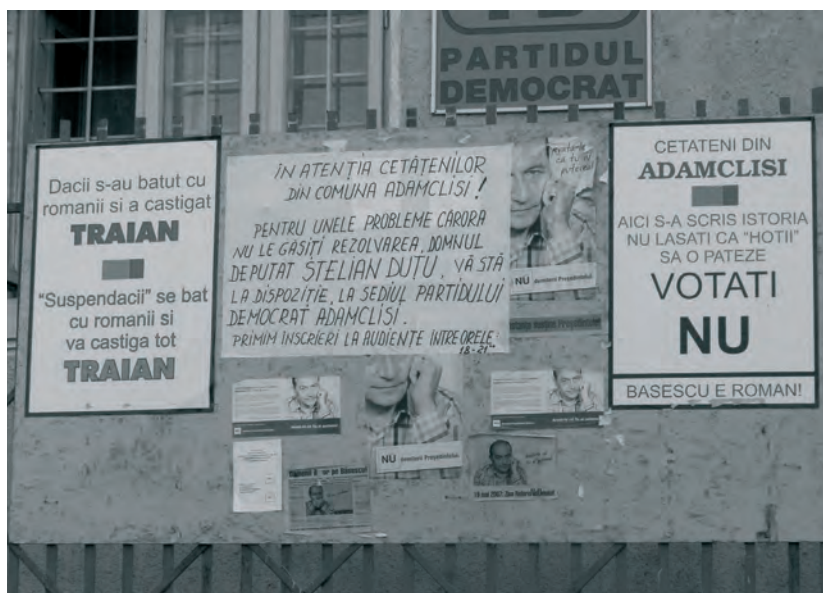 PARTIDUL
DEMOCRAT
Dacii s-au batut cu
romanii si a castigat
TRAIAN
"Suspendacii" se bat
cu romanii si
va castiga tot
TRAIAN
ÎN ATENȚIA CETĂȚENILOR
DIN COMUNA ADAMCLISI!
PENTRU UNELE PROBLEME CĂRORA
NU LE GĂSIȚI REZOLVAREA, DOMNUL
DEPUTAT STELIAN DUȚU, VĂ STĂ
LA DISPOZIȚIE, LA SEDIUL PARTIDULUI
DEMOCRAT ADAMCLISI.
PRIMIM ÎNSCRIERI LA AUDIENȚE ÎNTRE ORELE:
18-21
NU demiterii Președintelui
CETATENI DIN
ADAMCLISI
AICI S-A SCRIS ISTORIA
NU LASATI CA "HOTII"
SA O PATEZE
VOTATI
NU
BASESCU E ROMAN!
NU demiterii Președintelui
19 mai 2007: